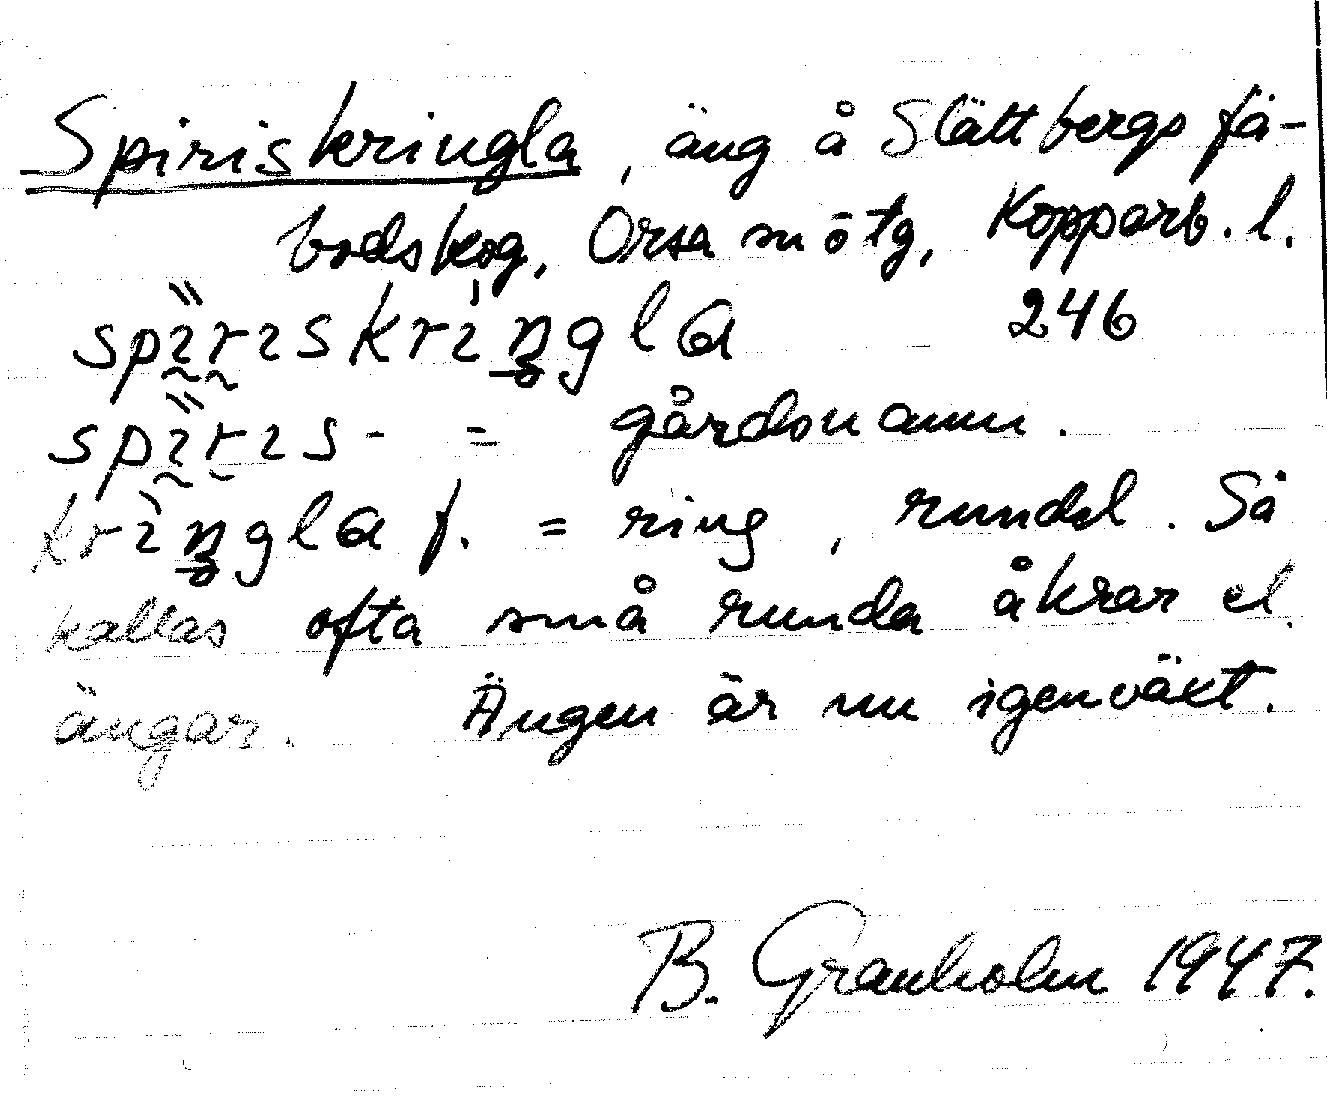 Spiriskringla, äng å Slättbergs fä-
bodskog, Orsa snötg, Kopparb. l.
spɪrɪskrɪŋgla 246
spɪrɪs- = gårdsnamn.
krɪŋgla f. = ring, rundel. Så
kallas ofta små runda åkrar el.
ängar. Ängen är nu igenväxt.
B. Granholm 1947.